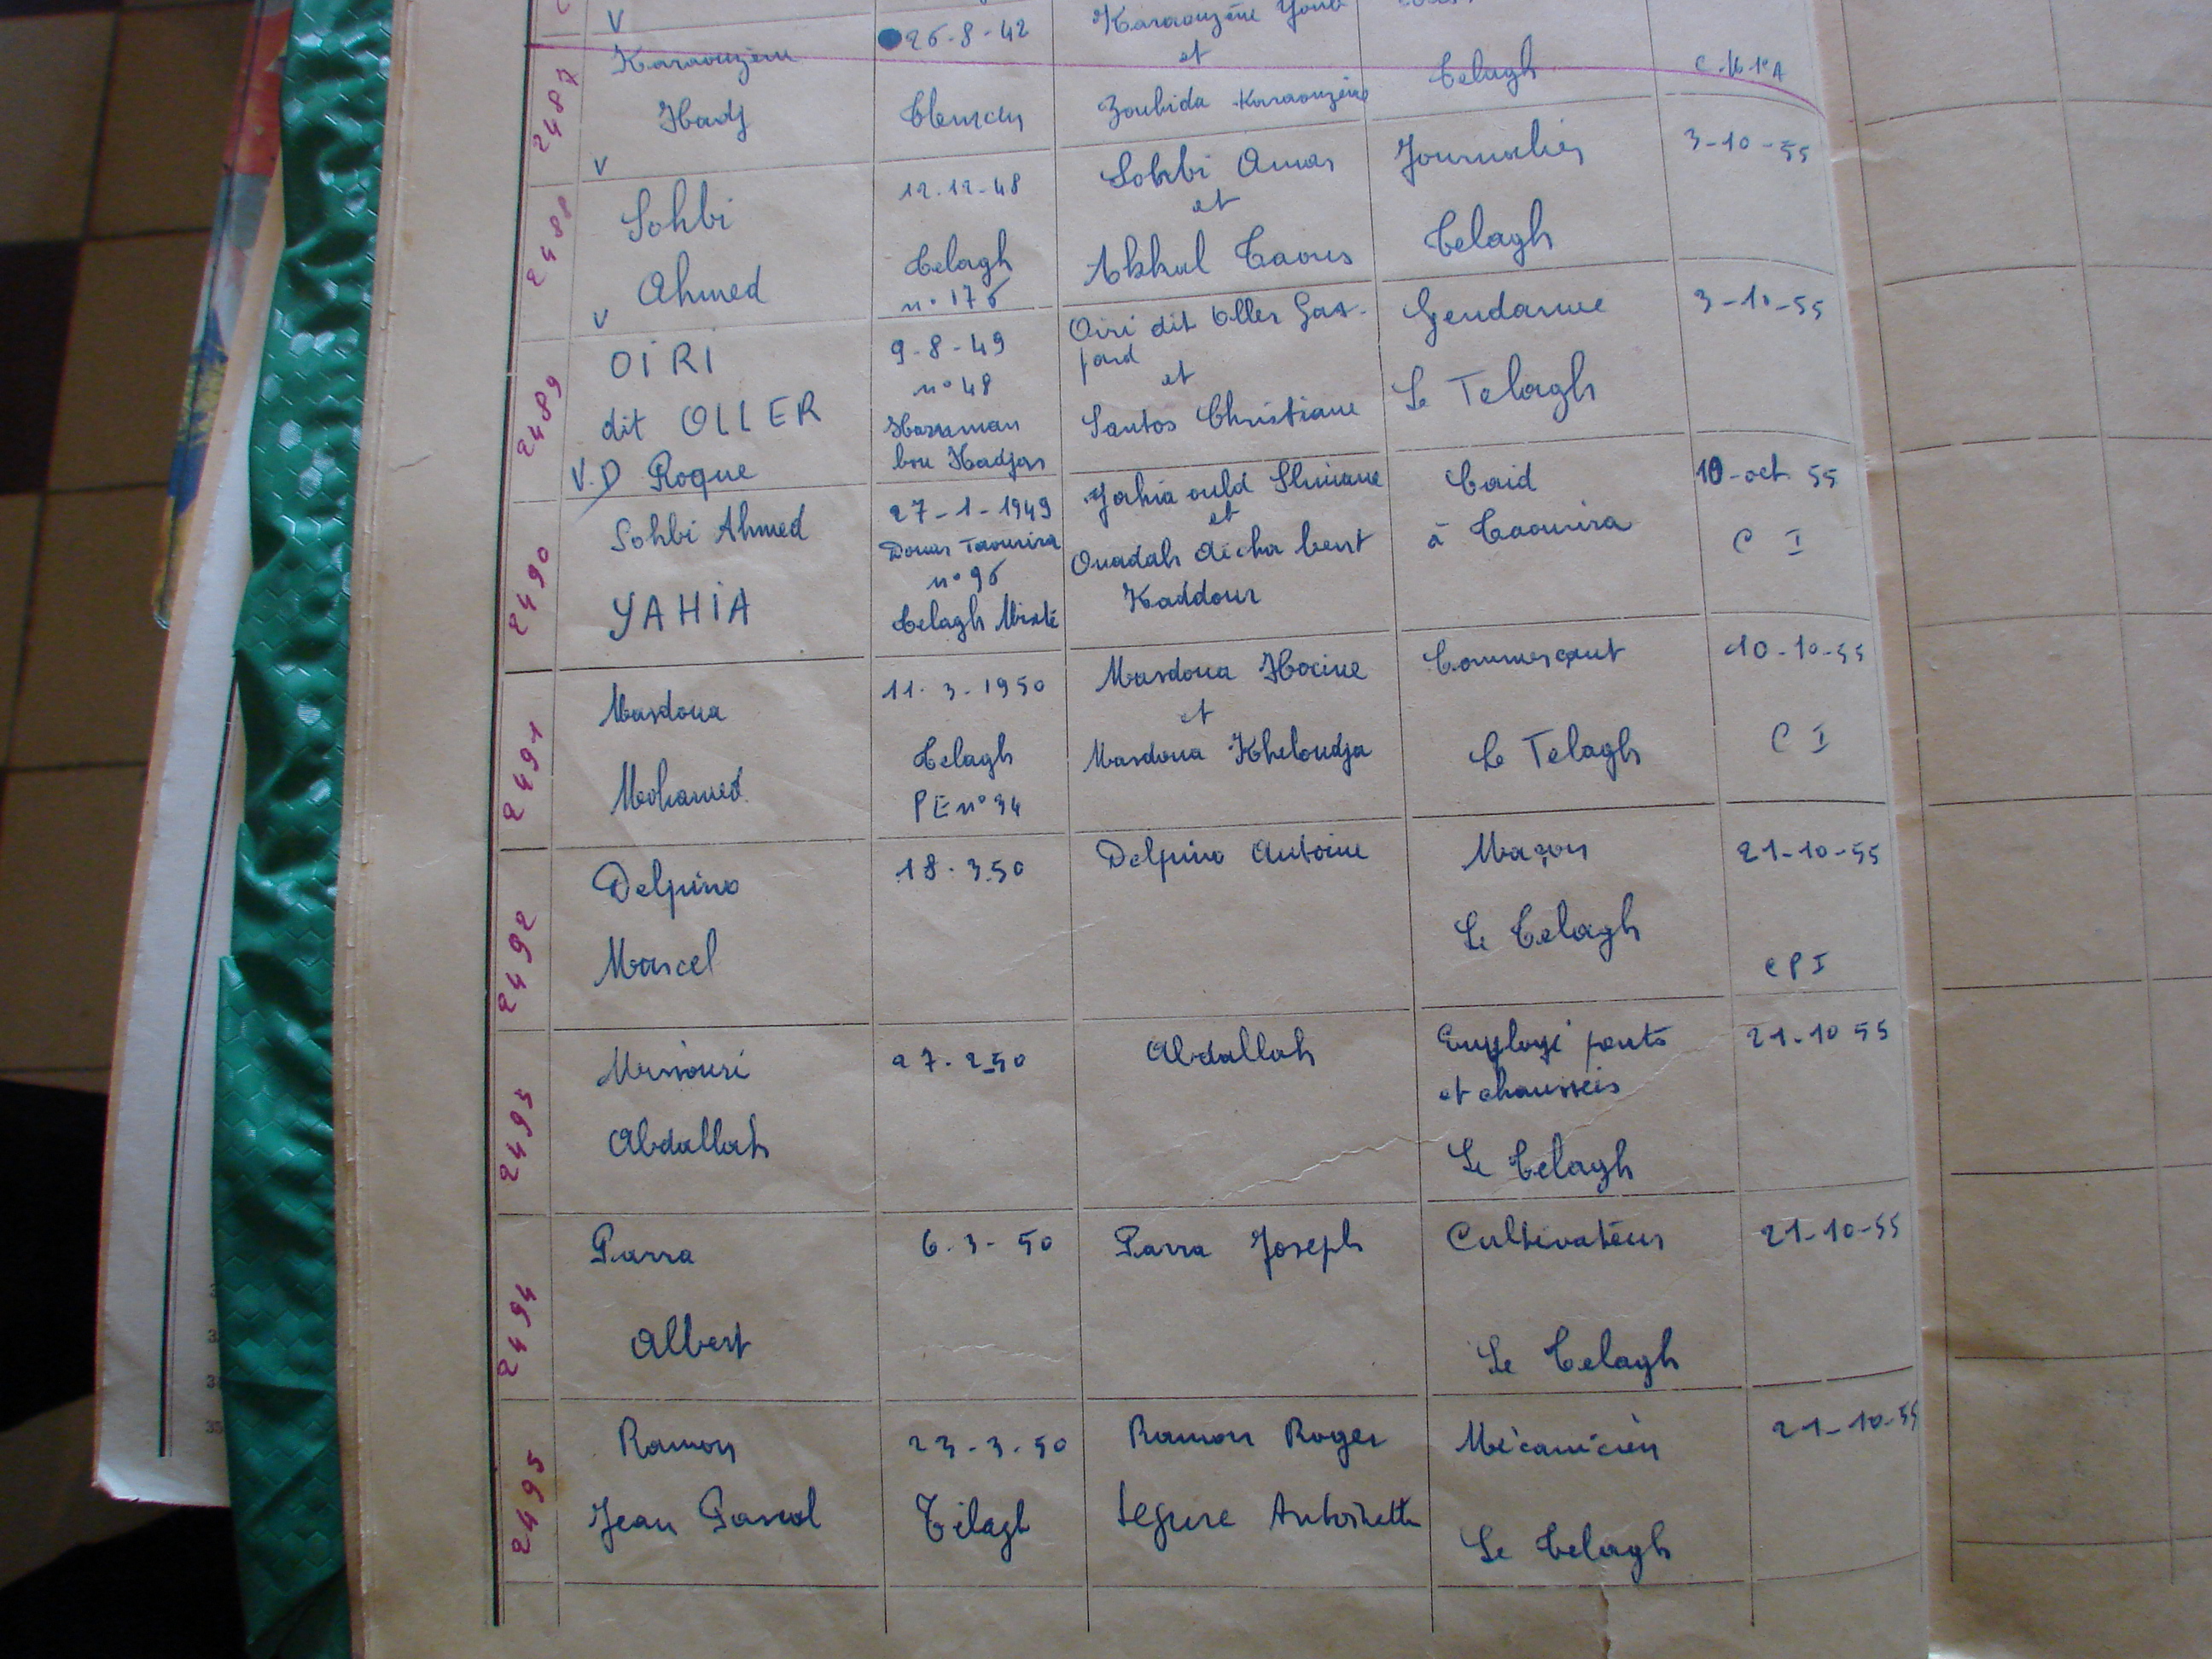 V
2487
Karaouzène
Hadj
26-8-42
Tlemcen
Karaouzène
et
Zoubida Karaouzène
Telagh
V
2488
Sohbi
Ahmed
12.12.48
Telagh
n° 176
Sohbi Omar
et
Akkal Taous
Journalier
Telagh
3-10-55
V
2489
OIRI
dit OLLER
Roque
9-8-49
n° 48
bou Hadjar
Oiri dit Oller Gas-
pard
et
Santos Christiane
Gendarme
Le Telagh
3-10-55
V.D
2490
Sohbi Ahmed
YAHIA
27-1-1949
Douar Taourira
n° 96
Telagh Mixte
Yahia ould Slimane
et
Ouadah Aicha bent
Kaddour
Caid
à Taourira
10-oct. 55
C I
2491
Masdoua
Mohamed
11.3.1950
Telagh
PE n° 34
Masdoua Hocine
et
Masdoua Kheloudja
Commerçant
Le Telagh
10-10-55
C I
2492
Delpino
Marcel
18.3.50
Delpino Antoine
Maçon
Le Telagh
21-10-55
C P I
2493
Missouri
Abdallah
27.2.50
Abdallah
Employé ponts
et chaussées
Le Telagh
21.10 55
2494
Parra
Albert
6.3-50
Parra Joseph
Cultivateur
Le Telagh
21-10-55
2495
Ramon
Jean Pascal
23-3-50
Télagh
Ramon Roger
Segure Antoinette
Mécanicien
Le Telagh
21-10-55